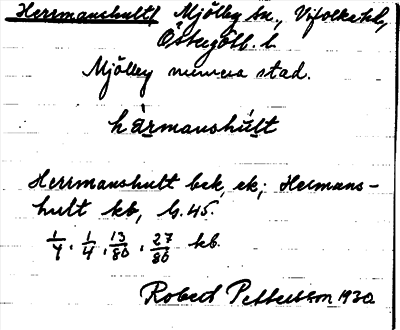 Herrmanshult, Mjölby sn., Vifolka hd,
Östergötl. l.
Mjölby numera stad.
härmanshúlt
Herrmanshult bek, ek; Hermans-
hult kb, h. 45.
1/4, 1/4, 13/80, 27/80 kb.
Robert Pettersson 1930